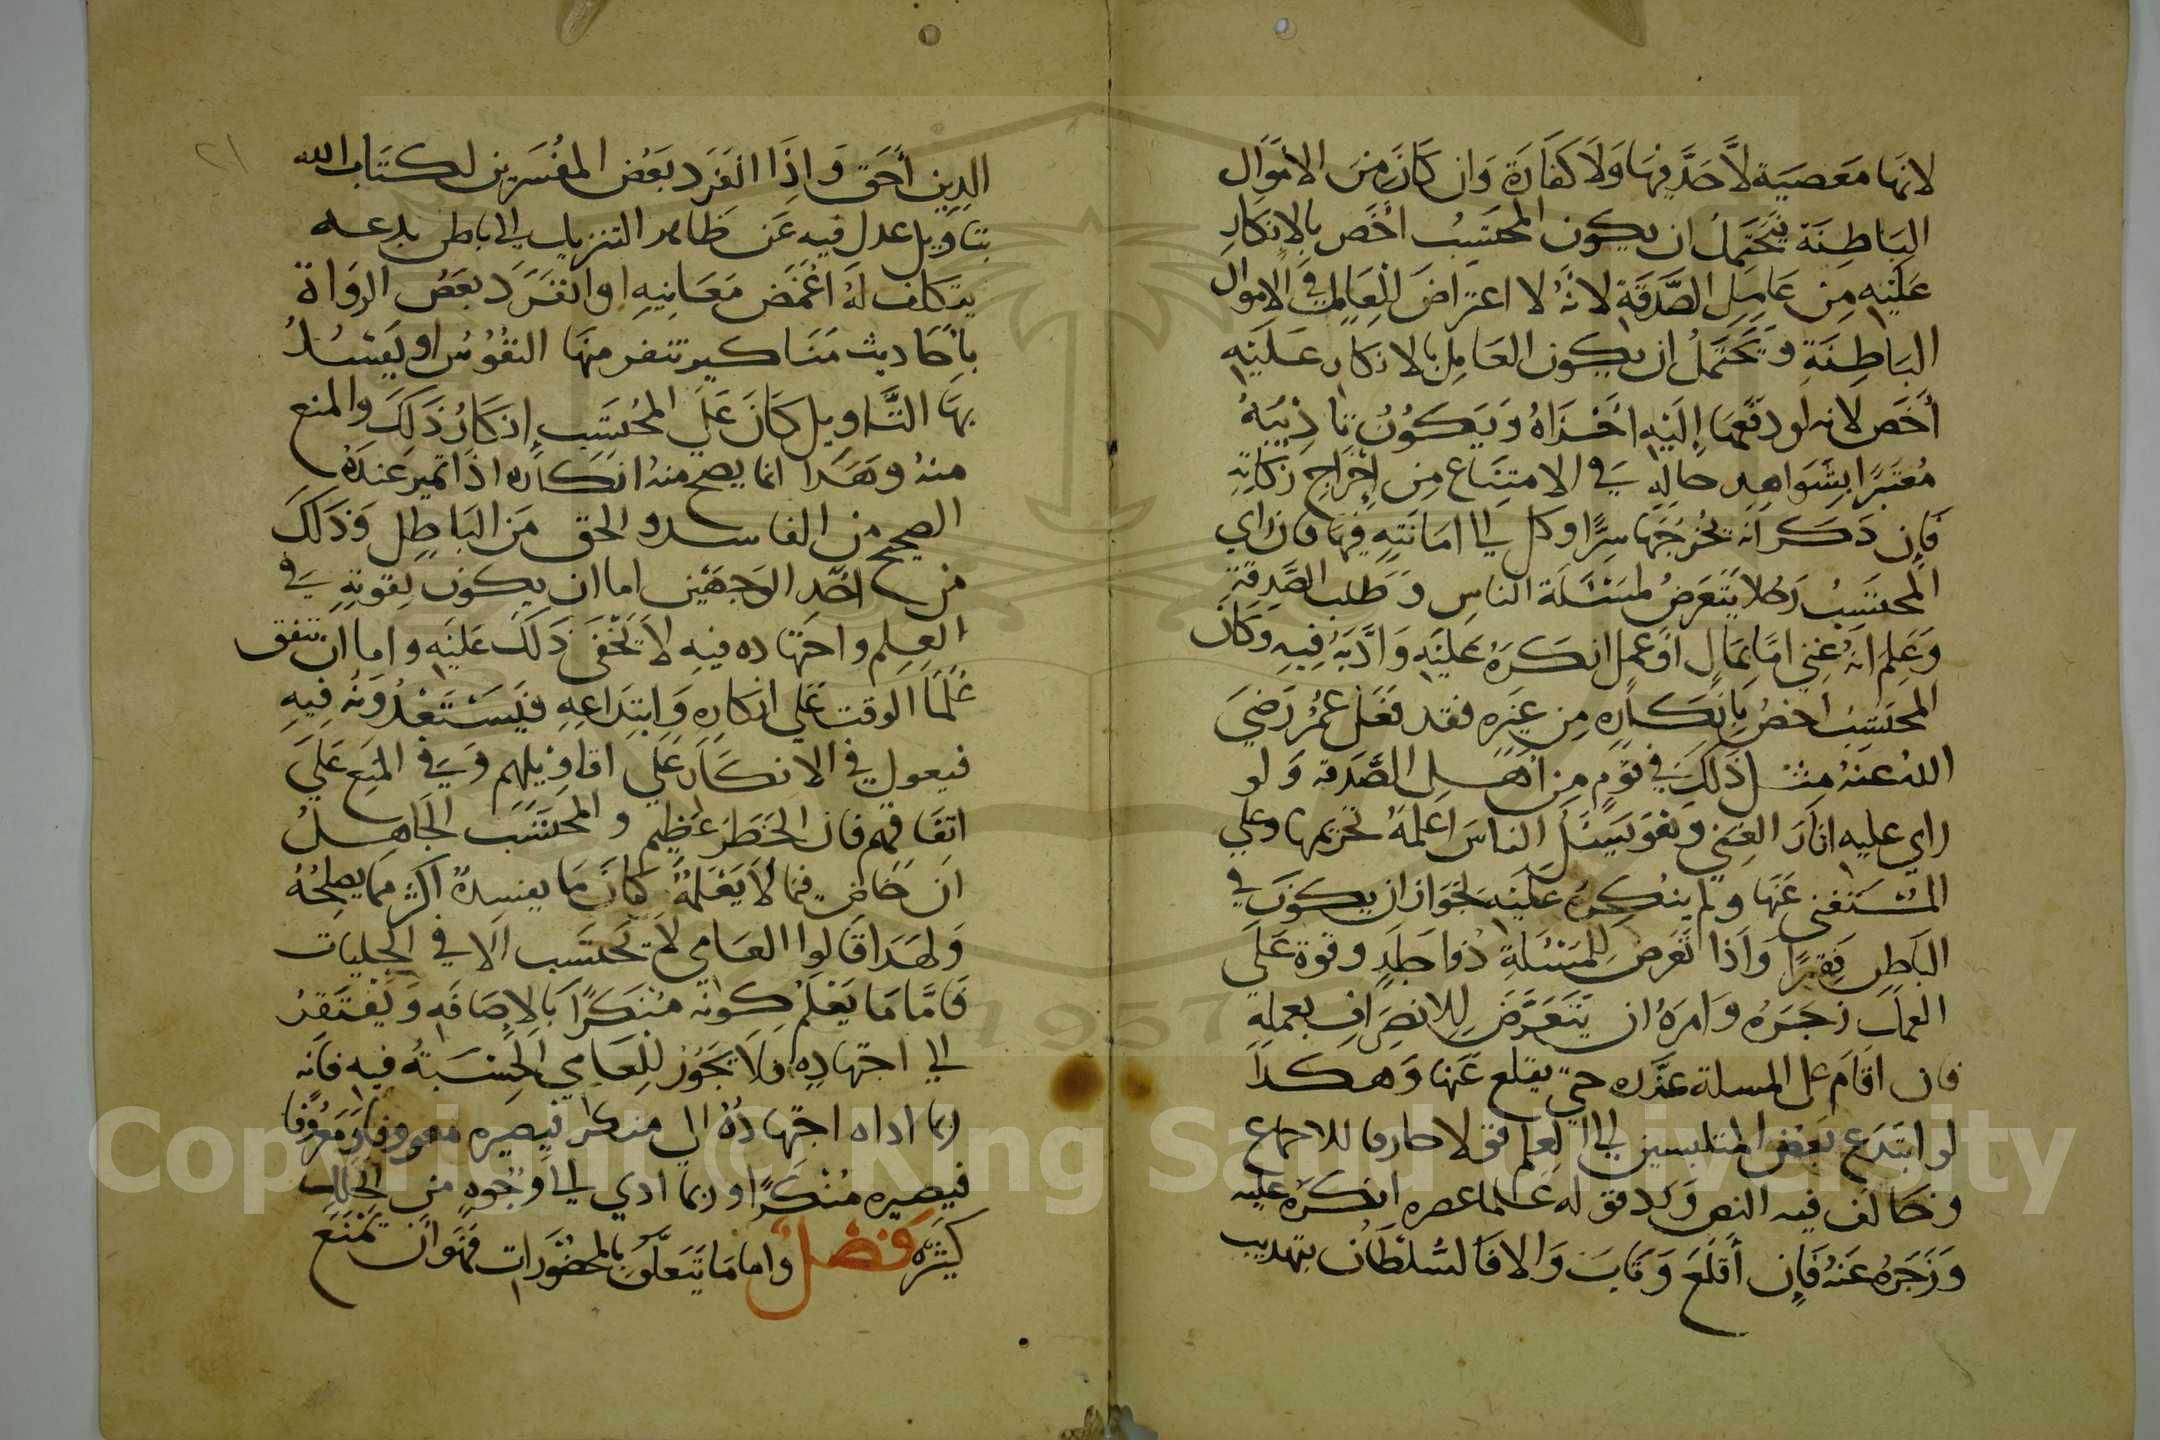 لانها معصية لا حد فيها ولا كفارة وان كان من الاموال
الباطنة يحتمل ان يكون المحتسب اخص بالانكار
عليه من عامل الصدقة لانه لا اعتراض للعامل في الاموال
الباطنة ويحتمل ان يكون العامل بالانكار عليه
أخص لانه لو دفعها إليه اجزاه ويكون تاديبه
معتبرا بشواهد حاله في الامتناع من إخراج زكاته
فإن ذكر انه يخرجها سرا وكل الى امانته فيها فان راي
المحتسب رجلا يتعرض لمسئلة الناس وطلب الصدقة
وعلم انه غني اما بمال او عمل انكره عليه وادبه فيه وكان
المحتسب اخص بانكاره من غيره فقد فعل عمر رضي
الله عنه مثل ذلك في قوم من اهل الصدقة ولو
راي عليه اثار الغني وهو يسئل الناس اعلمه تحريمها وعلي
المستغني عنها ولم ينكره عليه لجواز ان يكون في
الباطن فقيرا واذا تعرض للمسئلة ذوا جلد وقوة علي
العمل زجره وامره ان يتعرض للانصراف بعمله
فان اقام على المسلة عذره حتي يقلع عنها وهكذا
لو ابتدع بعض المتلبسين الي العلم قولا خارقا للاجماع
وخالف فيه النص ورد قوله علما عصره انكره عليه
وزجره عنه فإن أقلع وتاب والا فالسلطان بتهذيب
٢١
الدين أحق واذا انفرد بعض المفسرين لكتاب الله
بتاويل عدل فيه عن ظاهر التنزيل الي باطن بدعه
يتكلف له اغمض معانيه او انفرد بعض الرواة
باحاديث مناكير تنفر منها النفوس او يفسد
بها التاويل كان علي المحتسب إنكار ذلك والمنع
منه وهذا انما يصح منه انكاره اذا تميز عنده
الصحيح من الفاسد والحق من الباطل وذلك
من احد الوجهين اما ان يكون لقوته في
العلم واجتهاده فيه لا يخفى ذلك عليه واما ان تتفق
علما الوقت علي انكاره وابتداعه فيستعدونه فيه
فيعول في الانكار علي اقاويلهم وفي المنع علي
اتفاقهم فان الخطر عظيم والمحتسب الجاهل
ان خاض فيما لا يعلمه كان ما يفسده اكثر مما يصلحه
ولهذا قالوا العامي لا يحتسب الا في الجليات
فاما ما يعلم كونه منكرا بالاضافه ويفتقر
الي اجتهاده فلا يجوز للعامي الحسبة فيه فانه
ربما اداه اجتهاده الي منكر فيصيره معروفا ومعروفا
فيصيره منكرا وربما ادي الي وجوه من الخلل
كثيره فصل واما ما يتعلق بالمحضورات فهو ان يمنع
Copyright © King Saud University
1957